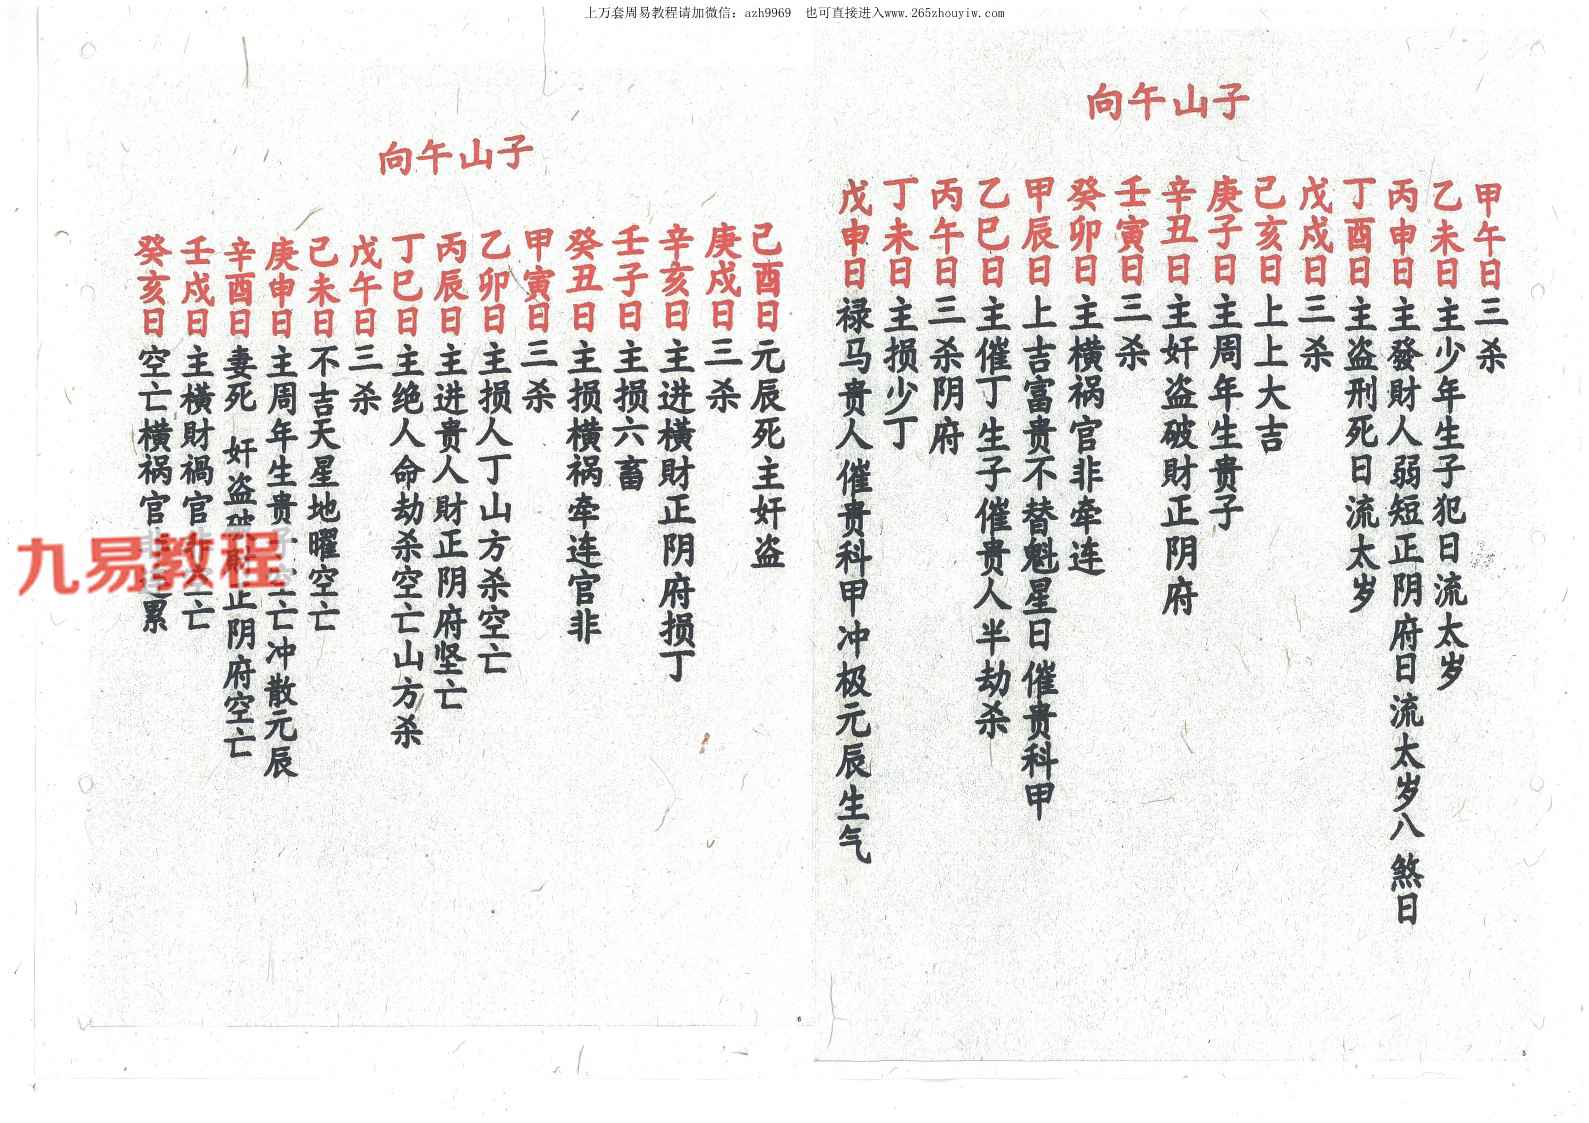 上万套周易教程请加微信：azh9969　也可直接进入www.265zhouyiw.com
子山午向
甲午日三杀
乙未日主少年生子犯日流太岁
丙申日主發財人弱短正阴府日流太岁八煞日
丁酉日主盗刑死日流太岁
戊戌日三杀
己亥日上上大吉
庚子日主周年生贵子
辛丑日主奸盗破財正阴府
壬寅日三杀
癸卯日主横祸官非牵连
甲辰日上吉富贵不替魁星日催贵科甲
乙巳日主催丁生子催贵人半劫杀
丙午日三杀阴府
丁未日主损少丁
戊申日禄马贵人催贵科甲冲极元辰生气
5
子山午向
己酉日元辰死主奸盗
庚戌日三杀
辛亥日主进横財正阴府损丁
壬子日主损六畜
癸丑日主损横祸牵连官非
甲寅日三杀
乙卯日主损人丁山方杀空亡
丙辰日主进贵人財正阴府坚亡
丁巳日主绝人命劫杀空亡山方杀
戊午日三杀
己未日不吉天星地曜空亡
庚申日主周年生贵子空亡冲散元辰
辛酉日妻死 奸盗破財正阴府空亡
壬戌日主横財禍官非空亡
癸亥日空亡横祸官累
九易教程
6